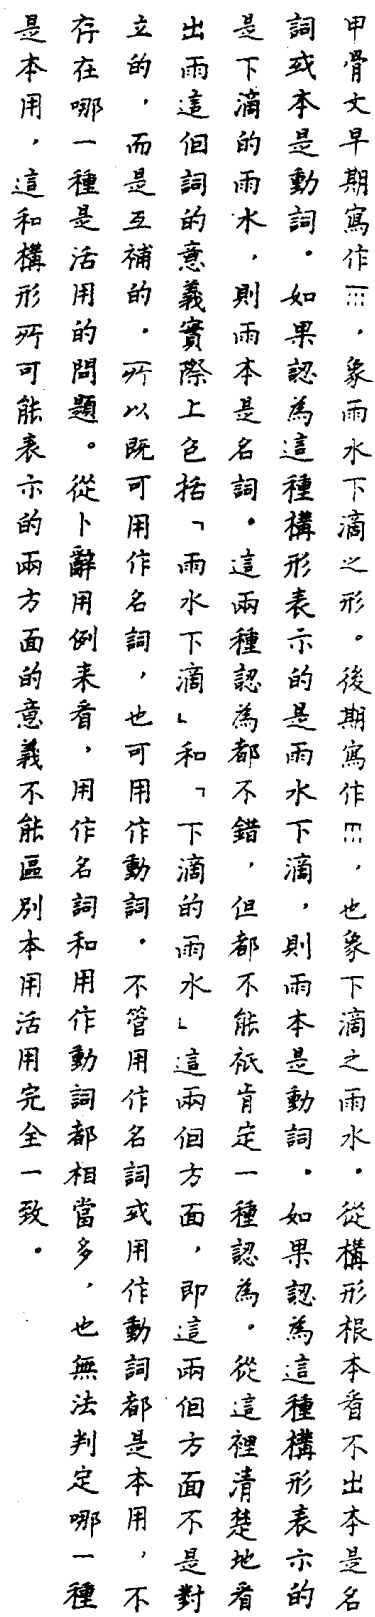 甲骨文早期寫作，象雨水下滴之形。後期寫作，也象下滴之雨水。從構形根本看不出本是名
詞或本是動詞。如果認為這種構形表示的是雨水下滴，則雨本是動詞。如果認為這種構形表示的
是下滴的雨水，則雨本是名詞。這兩種認為都不錯，但都不能衹肯定一種認為。從這裡清楚地看
出雨這個詞的意義實際上包括「雨水下滴」和「下滴的雨水」這兩個方面，即這兩個方面不是對
立的，而是互補的。所以既可用作名詞，也可用作動詞。不管用作名詞或用作動詞都是本用，不
存在哪一種是活用的問題。從卜辭用例来看，用作名詞和用作動詞都相當多，也無法判定哪一種
是本用，這和構形所可能表示的兩方面的意義不能區別本用活用完全一致。